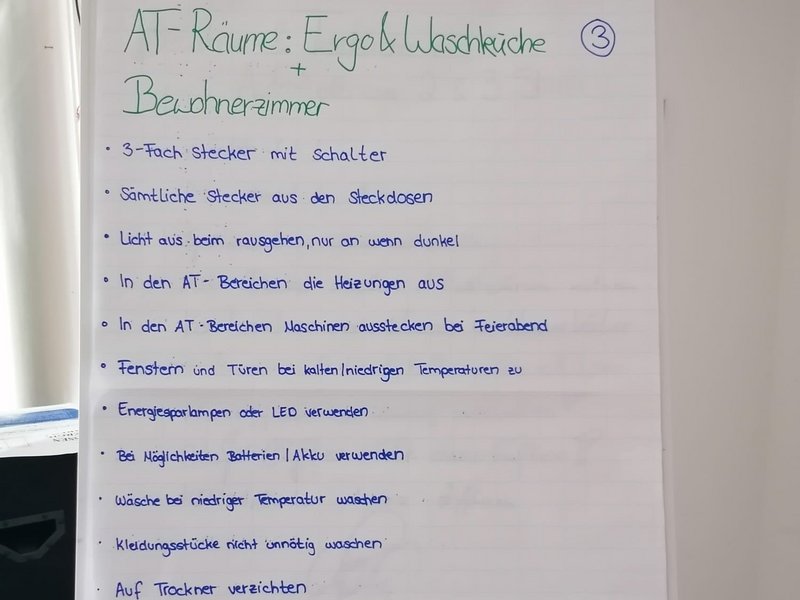 AT-Räume: Ergo & Waschküche ③
+
Bewohnerzimmer
• 3-Fach Stecker mit Schalter
• Sämtliche Stecker aus den Steckdosen
• Licht aus beim rausgehen, nur an wenn dunkel
• In den AT-Bereichen die Heizungen aus
• In den AT-Bereichen Maschinen ausstecken bei Feierabend
• Fenstern und Türen bei kalten/niedrigen Temperaturen zu
• Energiesparlampen oder LED verwenden
• Bei Möglichkeiten Batterien/Akku verwenden
• Wäsche bei niedriger Temperatur waschen
• Kleidungsstücke nicht unnötig waschen
• Auf Trockner verzichten